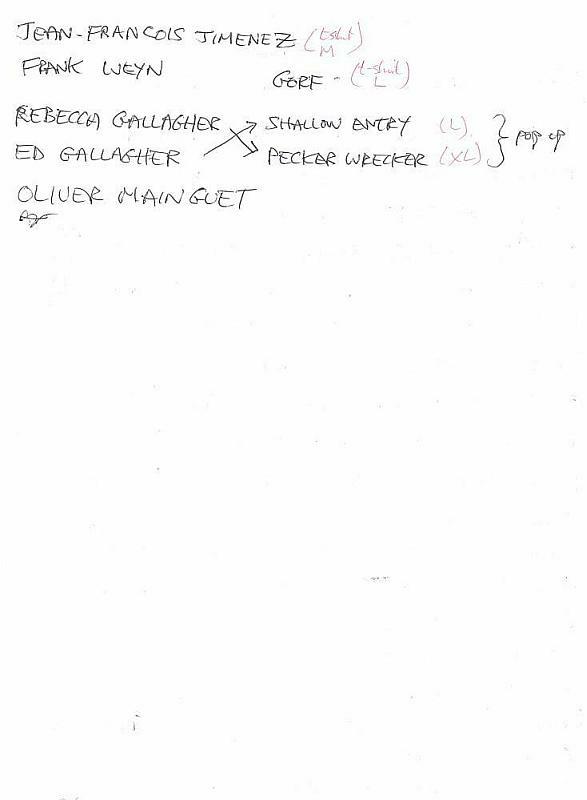 JEAN-FRANCOIS JIMENEZ (tshirt M)
FRANK WEYN GORF - (t-shirt L)
REBECCA GALLAGHER SHALLOW ENTRY (L)
ED GALLAGHER PECKER WRECKER (XL) pop up
OLIVER MAINGUET